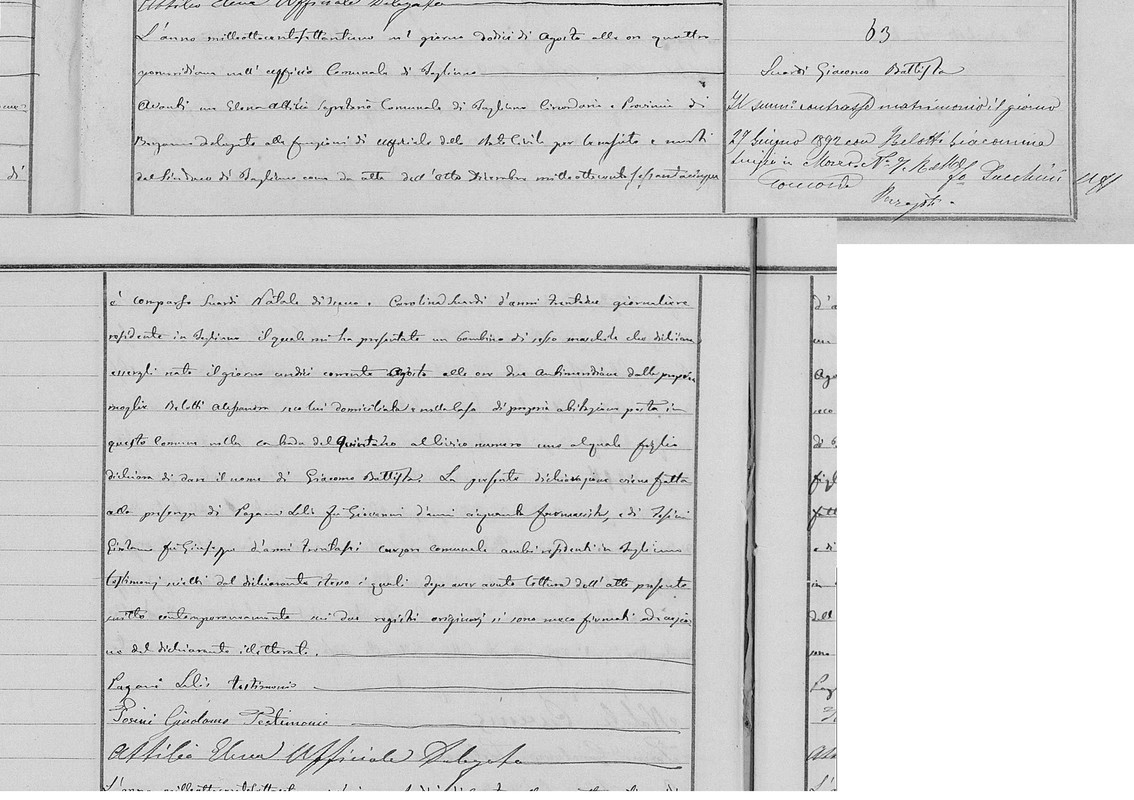 Attilio Elena Ufficiale Delegato
L'anno milleottocentosettantuno il giorno dodici di Agosto alle ore quattro
pomeridiane nell'ufficio Comunale di Tagliuno
Avanti me Elena Attilio Segretario Comunale di Tagliuno Circondario e Provincia di
Bergamo delegato alle funzioni di ufficiale dello Stato Civile per le nascite e morti
dal Sindaco di Tagliuno come da atto dell'otto Dicembre milleottocentosessantacinque
63
Suardi Giacomo Battista
Il summo contrasse matrimonio il giorno
27 Giugno 1892 con Belotti Giacomina
Concorda
è comparso Suardi Natale di e Carolina Suardi d'anni trentadue giornaliere
residente in Tagliuno il quale mi ha presentato un bambino di sesso maschile che dichiara
essergli nato il giorno undici corrente Agosto alle ore due antimeridiane dalla propria
moglie Belotti Alessandra seco lui domiciliata e nella casa di propria abitazione posta in
questo Comune nella contrada del al civico numero uno al quale figlio
dichiara di dare il nome di Giacomo Battista. La presente dichiarazione viene fatta
alla presenza di Pagani Lelio fu Giovanni d'anni cinquanta farmacista, e di Tosini
Girolamo fu Giuseppe d'anni trentasei cursore comunale ambi residenti in Tagliuno
testimonj scelti dal dichiarante stesso i quali dopo aver avuto lettura dell'atto presente
scritto contemporaneamente sui due registri originarj si sono meco firmati ad eccezio-
ne del dichiarante illetterato.
Pagani Lelio testimonio
Tosini Girolamo Testimonio
Attilio Elena Ufficiale Delegato